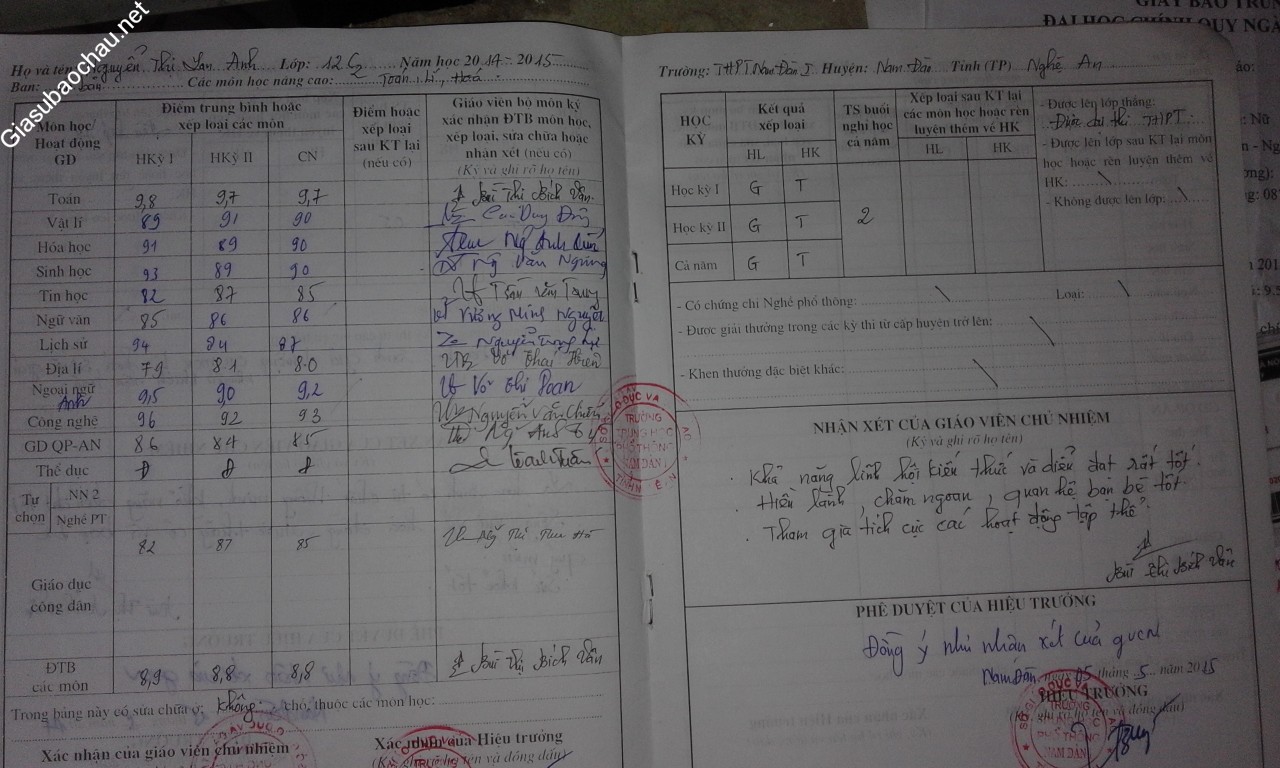 Giasubaochau.net
GIẤY BÁO TRÚN
ĐẠI HỌC CHÍNH QUY NGÀ
Họ và tên: Nguyễn Thị Lan Anh Lớp: 12C Năm học 2014 - 2015
Ban: Các môn học nâng cao: Toán, Lí, Hoá
Môn học/ Hoạt động GD
Điểm trung bình hoặc xếp loại các môn
HKỳ I HKỳ II CN
Điểm hoặc xếp loại sau KT lại (nếu có)
Giáo viên bộ môn ký xác nhận ĐTB môn học, xếp loại, sửa chữa hoặc nhận xét (nếu có)
(Ký và ghi rõ họ tên)
Toán 9,8 9,7 9,7 Bùi Thị Bích Vân
Vật lí 89 91 90 Cao Duy
Hóa học 91 89 90 Ng Anh
Sinh học 93 89 90 Ng Văn
Tin học 82 87 85 Trần
Ngữ văn 85 86 86 Minh Nguyệt
Lịch sử 94 84 87 Nguyễn Trọng
Địa lí 79 8.1 8.0 Võ Thái Hiền
Ngoại ngữ Anh 9,5 90 9,2 Võ Thị Hoan
Công nghệ 96 92 93 Nguyễn Văn
GD QP-AN 86 84 85 Ng Anh
Thể dục Đ Đ Đ
Tự chọn NN 2
Nghề PT
Giáo dục công dân 82 87 85 Ng Thị Thu Hà
ĐTB các môn 8,9 8,8 8,8 Bùi Thị Bích Vân
Trong bảng này có sửa chữa ở: Không chỗ, thuộc các môn học:
Xác nhận của giáo viên chủ nhiệm
Xác nhận của Hiệu trưởng
(Ký, ghi rõ họ tên và đóng dấu)
Trường: THPT Nam Đàn I Huyện: Nam Đàn Tỉnh (TP) Nghệ An
HỌC KỲ
Kết quả xếp loại
HL HK
TS buổi nghỉ học cả năm
Xếp loại sau KT lại các môn học hoặc rèn luyện thêm về HK
HL HK
- Được lên lớp thẳng:
Được dự thi THPT
- Được lên lớp sau KT lại môn học hoặc rèn luyện thêm về HK:
- Không được lên lớp:
Học kỳ I G T
Học kỳ II G T
2
Cả năm G T
- Có chứng chỉ Nghề phổ thông: Loại:
- Được giải thưởng trong các kỳ thi từ cấp huyện trở lên:
- Khen thưởng đặc biệt khác:
NHẬN XÉT CỦA GIÁO VIÊN CHỦ NHIỆM
(Ký và ghi rõ họ tên)
. Khả năng lĩnh hội kiến thức và diễn đạt rất tốt.
. Hiền lành, chăm ngoan, quan hệ bạn bè tốt.
. Tham gia tích cực các hoạt động tập thể.
Bùi Thị Bích Vân
PHÊ DUYỆT CỦA HIỆU TRƯỞNG
Đồng ý như nhận xét của gvcn
Nam Đàn, ngày 05 tháng 5 năm 2015
HIỆU TRƯỞNG
(Ký, ghi rõ họ tên và đóng dấu)
TRƯỜNG
TRUNG HỌC
PHỔ THÔNG
NAM ĐÀN I